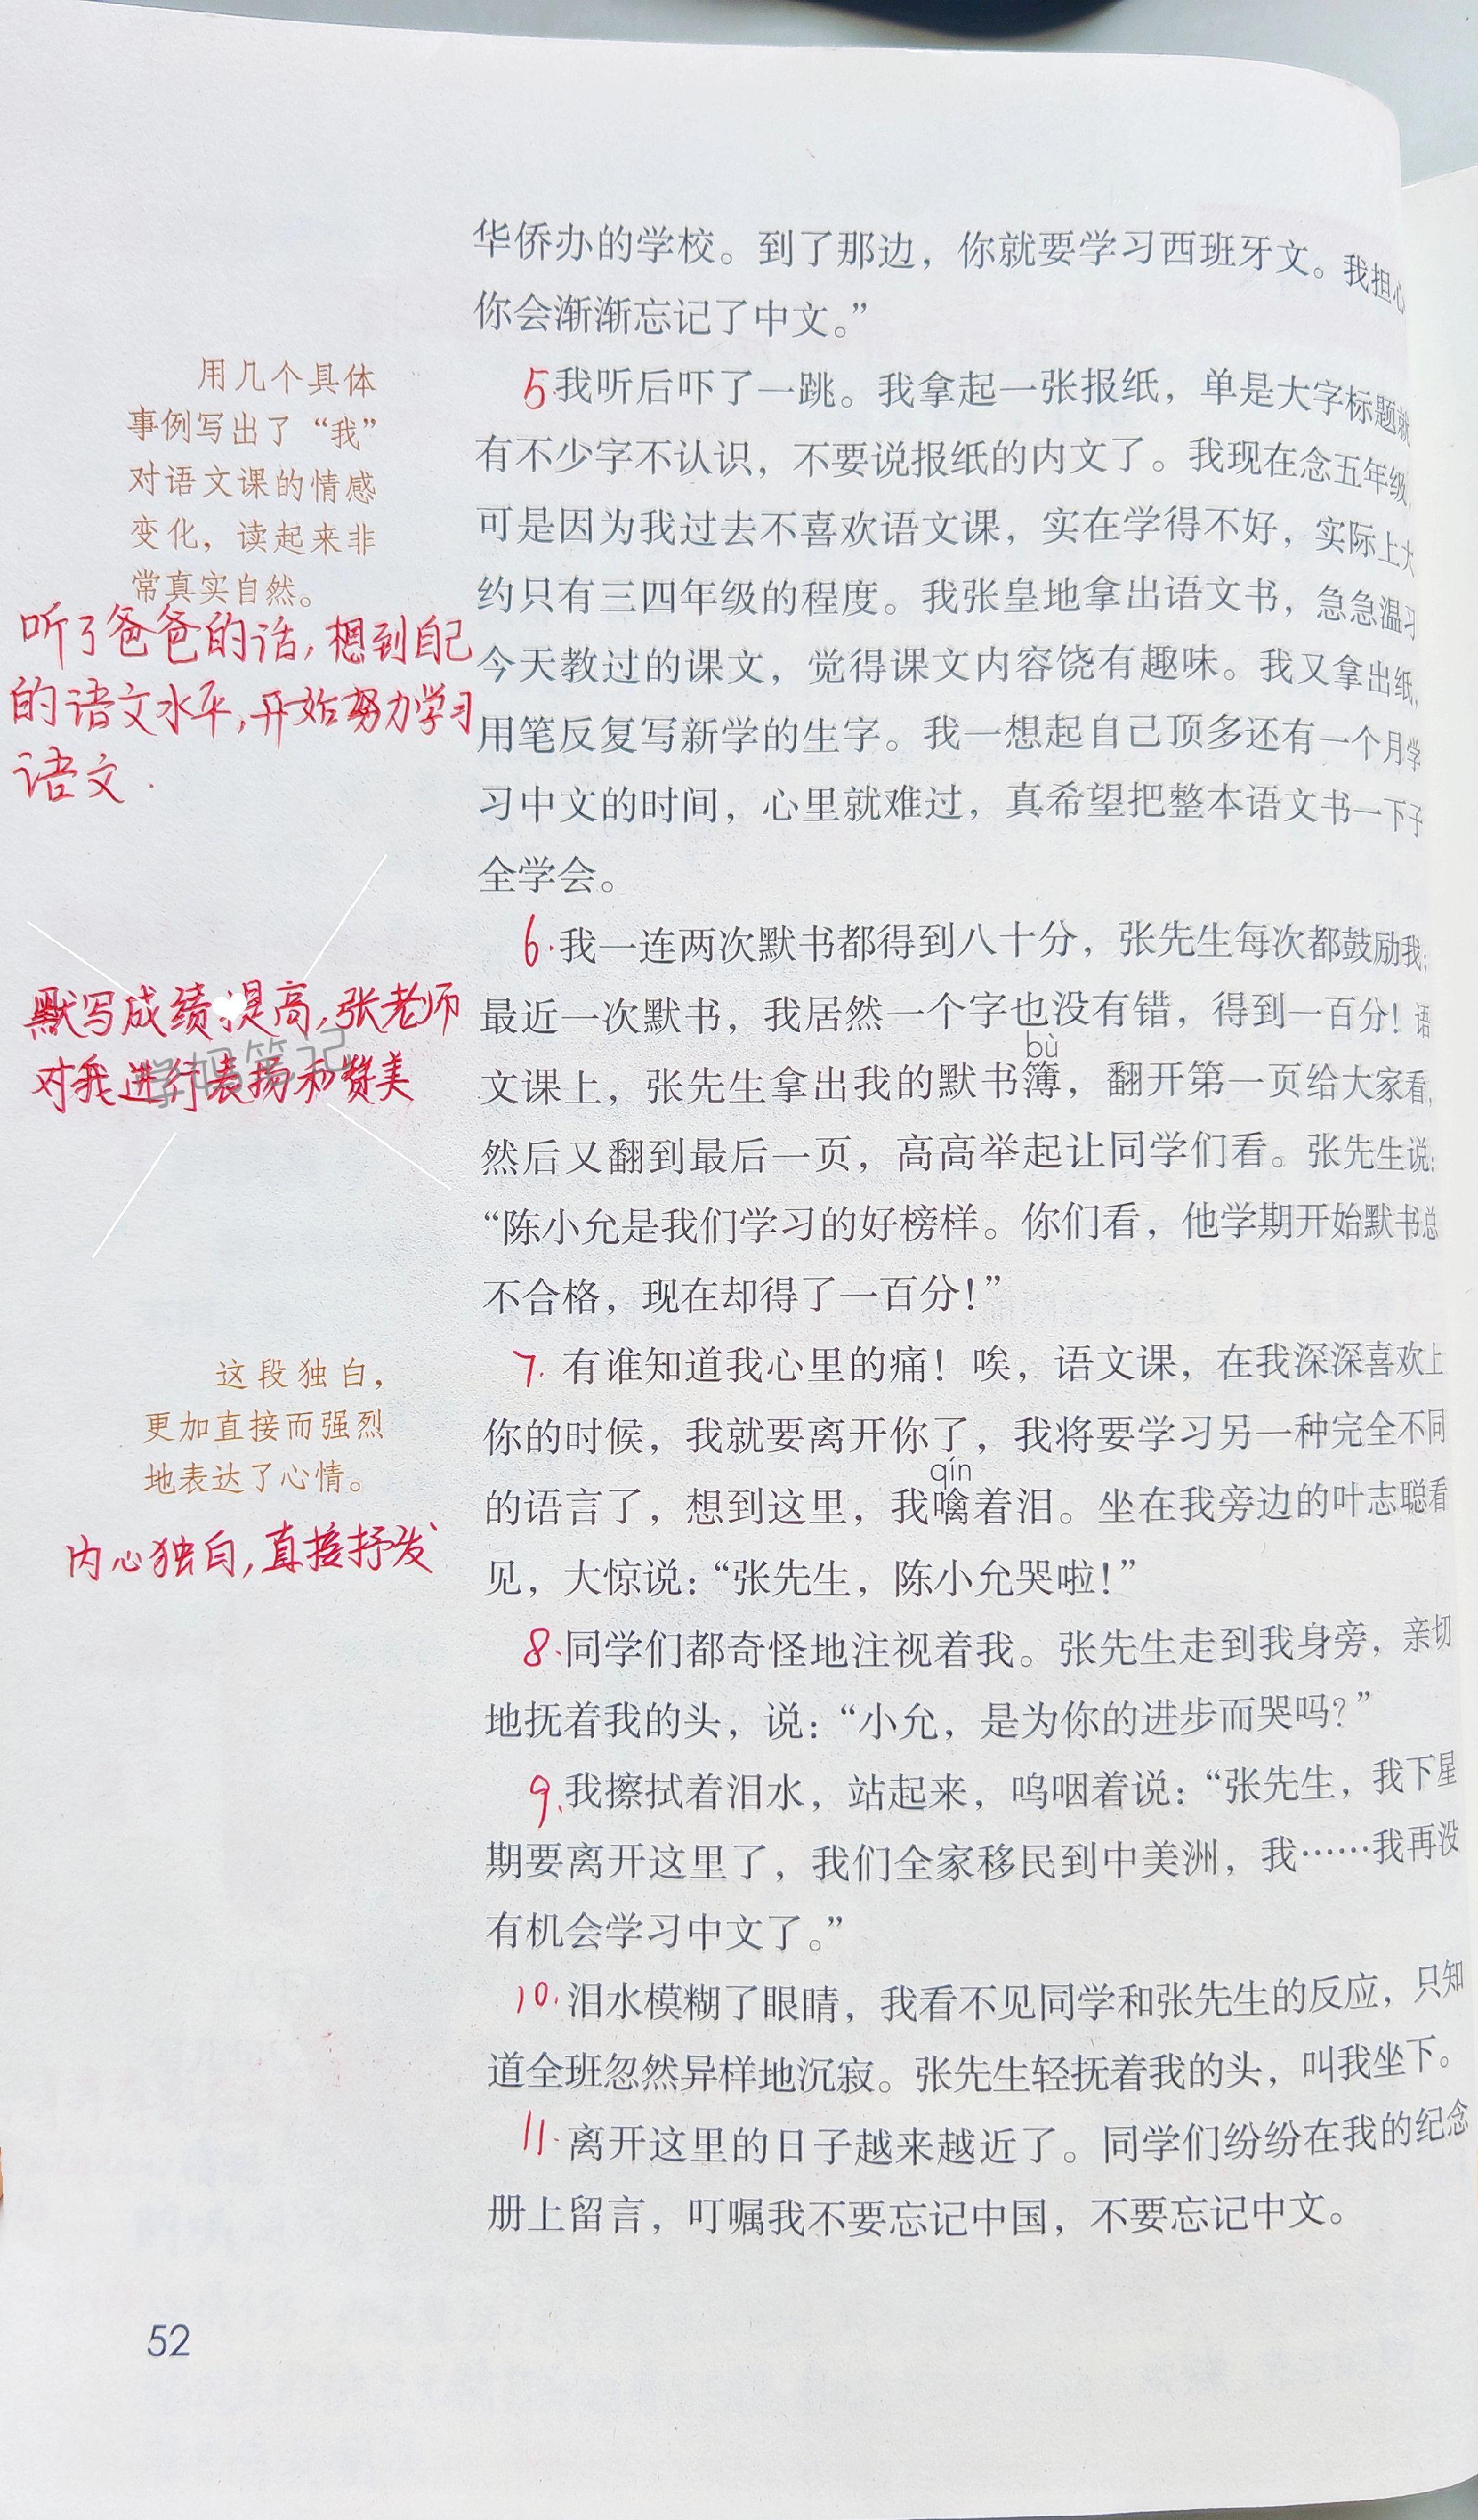 华侨办的学校。到了那边，你就要学习西班牙文。我担心
你会渐渐忘记了中文。”
5.我听后吓了一跳。我拿起一张报纸，单是大字标题就
有不少字不认识，不要说报纸的内文了。我现在念五年级，
可是因为我过去不喜欢语文课，实在学得不好，实际上大
约只有三四年级的程度。我张皇地拿出语文书，急急温习
今天教过的课文，觉得课文内容饶有趣味。我又拿出纸，
用笔反复写新学的生字。我一想起自己顶多还有一个月学
习中文的时间，心里就难过，真希望把整本语文书一下子
全学会。
6.我一连两次默书都得到八十分，张先生每次都鼓励我。
最近一次默书，我居然一个字也没有错，得到一百分！语
bù
文课上，张先生拿出我的默书簿，翻开第一页给大家看，
然后又翻到最后一页，高高举起让同学们看。张先生说：
“陈小允是我们学习的好榜样。你们看，他学期开始默书总
不合格，现在却得了一百分！”
7.有谁知道我心里的痛！唉，语文课，在我深深喜欢上
你的时候，我就要离开你了，我将要学习另一种完全不同
qín
的语言了，想到这里，我噙着泪。坐在我旁边的叶志聪看
见，大惊说：“张先生，陈小允哭啦！”
8.同学们都奇怪地注视着我。张先生走到我身旁，亲切
地抚着我的头，说：“小允，是为你的进步而哭吗？”
9.我擦拭着泪水，站起来，呜咽着说：“张先生，我下星
期要离开这里了，我们全家移民到中美洲，我……我再没
有机会学习中文了。”
10.泪水模糊了眼睛，我看不见同学和张先生的反应，只知
道全班忽然异样地沉寂。张先生轻抚着我的头，叫我坐下。
11.离开这里的日子越来越近了。同学们纷纷在我的纪念
册上留言，叮嘱我不要忘记中国，不要忘记中文。
用几个具体
事例写出了“我”
对语文课的情感
变化，读起来非
常真实自然。
听了爸爸的话，想到自己
的语文水平，开始努力学习
语文.
默写成绩提高，张老师
对我进行表扬和赞美
学妈笔记
这段独白，
更加直接而强烈
地表达了心情。
内心独白，直接抒发
52